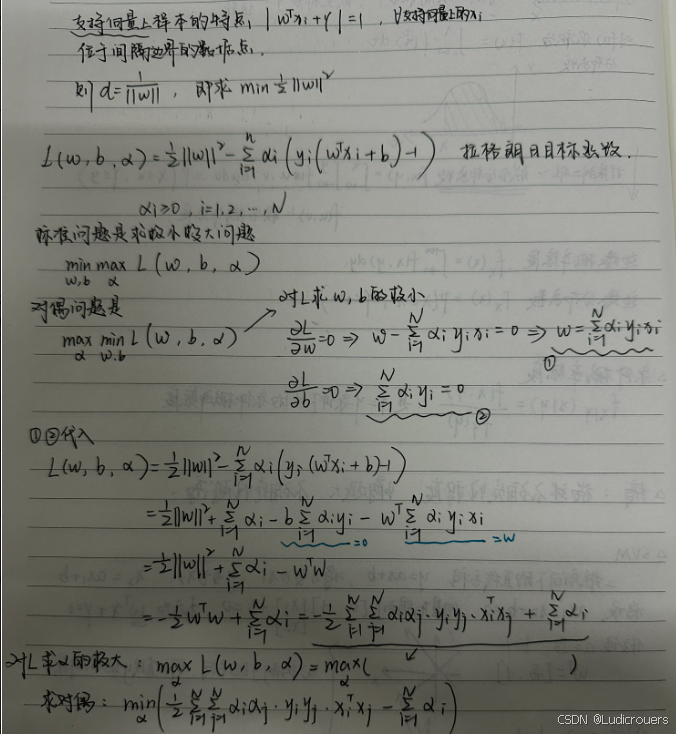 支持向量上样本的特点, |wᵀxᵢ+γ|=1, ∀支持向量上的xᵢ
位于间隔边界的数据点.
则 d=1/||w||, 即求 min ½||w||²
L(w,b,α)=½||w||²-Σᵢ₌₁ⁿ αᵢ(yᵢ(wᵀxᵢ+b)-1) 拉格朗日目标函数.
αᵢ≥0, i=1,2,…,N
标准问题是求极小极大问题
min_{w,b} max_α L(w,b,α)
对偶问题是
max_α min_{w.b} L(w,b,α)
对L求w,b的极小
∂L/∂w=0 ⇒ w-Σᵢ₌₁ᴺ αᵢyᵢxᵢ=0 ⇒ w=Σᵢ₌₁ᴺ αᵢyᵢxᵢ
①
∂L/∂b=0 ⇒ Σᵢ₌₁ᴺ αᵢyᵢ=0
②
①②代入
L(w,b,α)=½||w||²-Σᵢ₌₁ᴺ αᵢ(yᵢ(wᵀxᵢ+b)-1)
=½||w||²+Σᵢ₌₁ᴺ αᵢ-bΣᵢ₌₁ᴺ αᵢyᵢ-wᵀΣᵢ₌₁ᴺ αᵢyᵢxᵢ
=0 =w
=½||w||²+Σᵢ₌₁ᴺ αᵢ-wᵀw
=-½wᵀw+Σᵢ₌₁ᴺ αᵢ=-½Σᵢ₌₁ᴺΣⱼ₌₁ᴺ αᵢαⱼ·yᵢyⱼ·xᵢᵀxⱼ+Σᵢ₌₁ᴺ αᵢ
对L求α的极大: max_α L(w,b,α)=max_α( )
求对偶: min_α(½Σᵢ₌₁ᴺΣⱼ₌₁ᴺ αᵢαⱼ·yᵢyⱼ·xᵢᵀxⱼ-Σᵢ₌₁ᴺ αᵢ)
CSDN @Ludicrouers